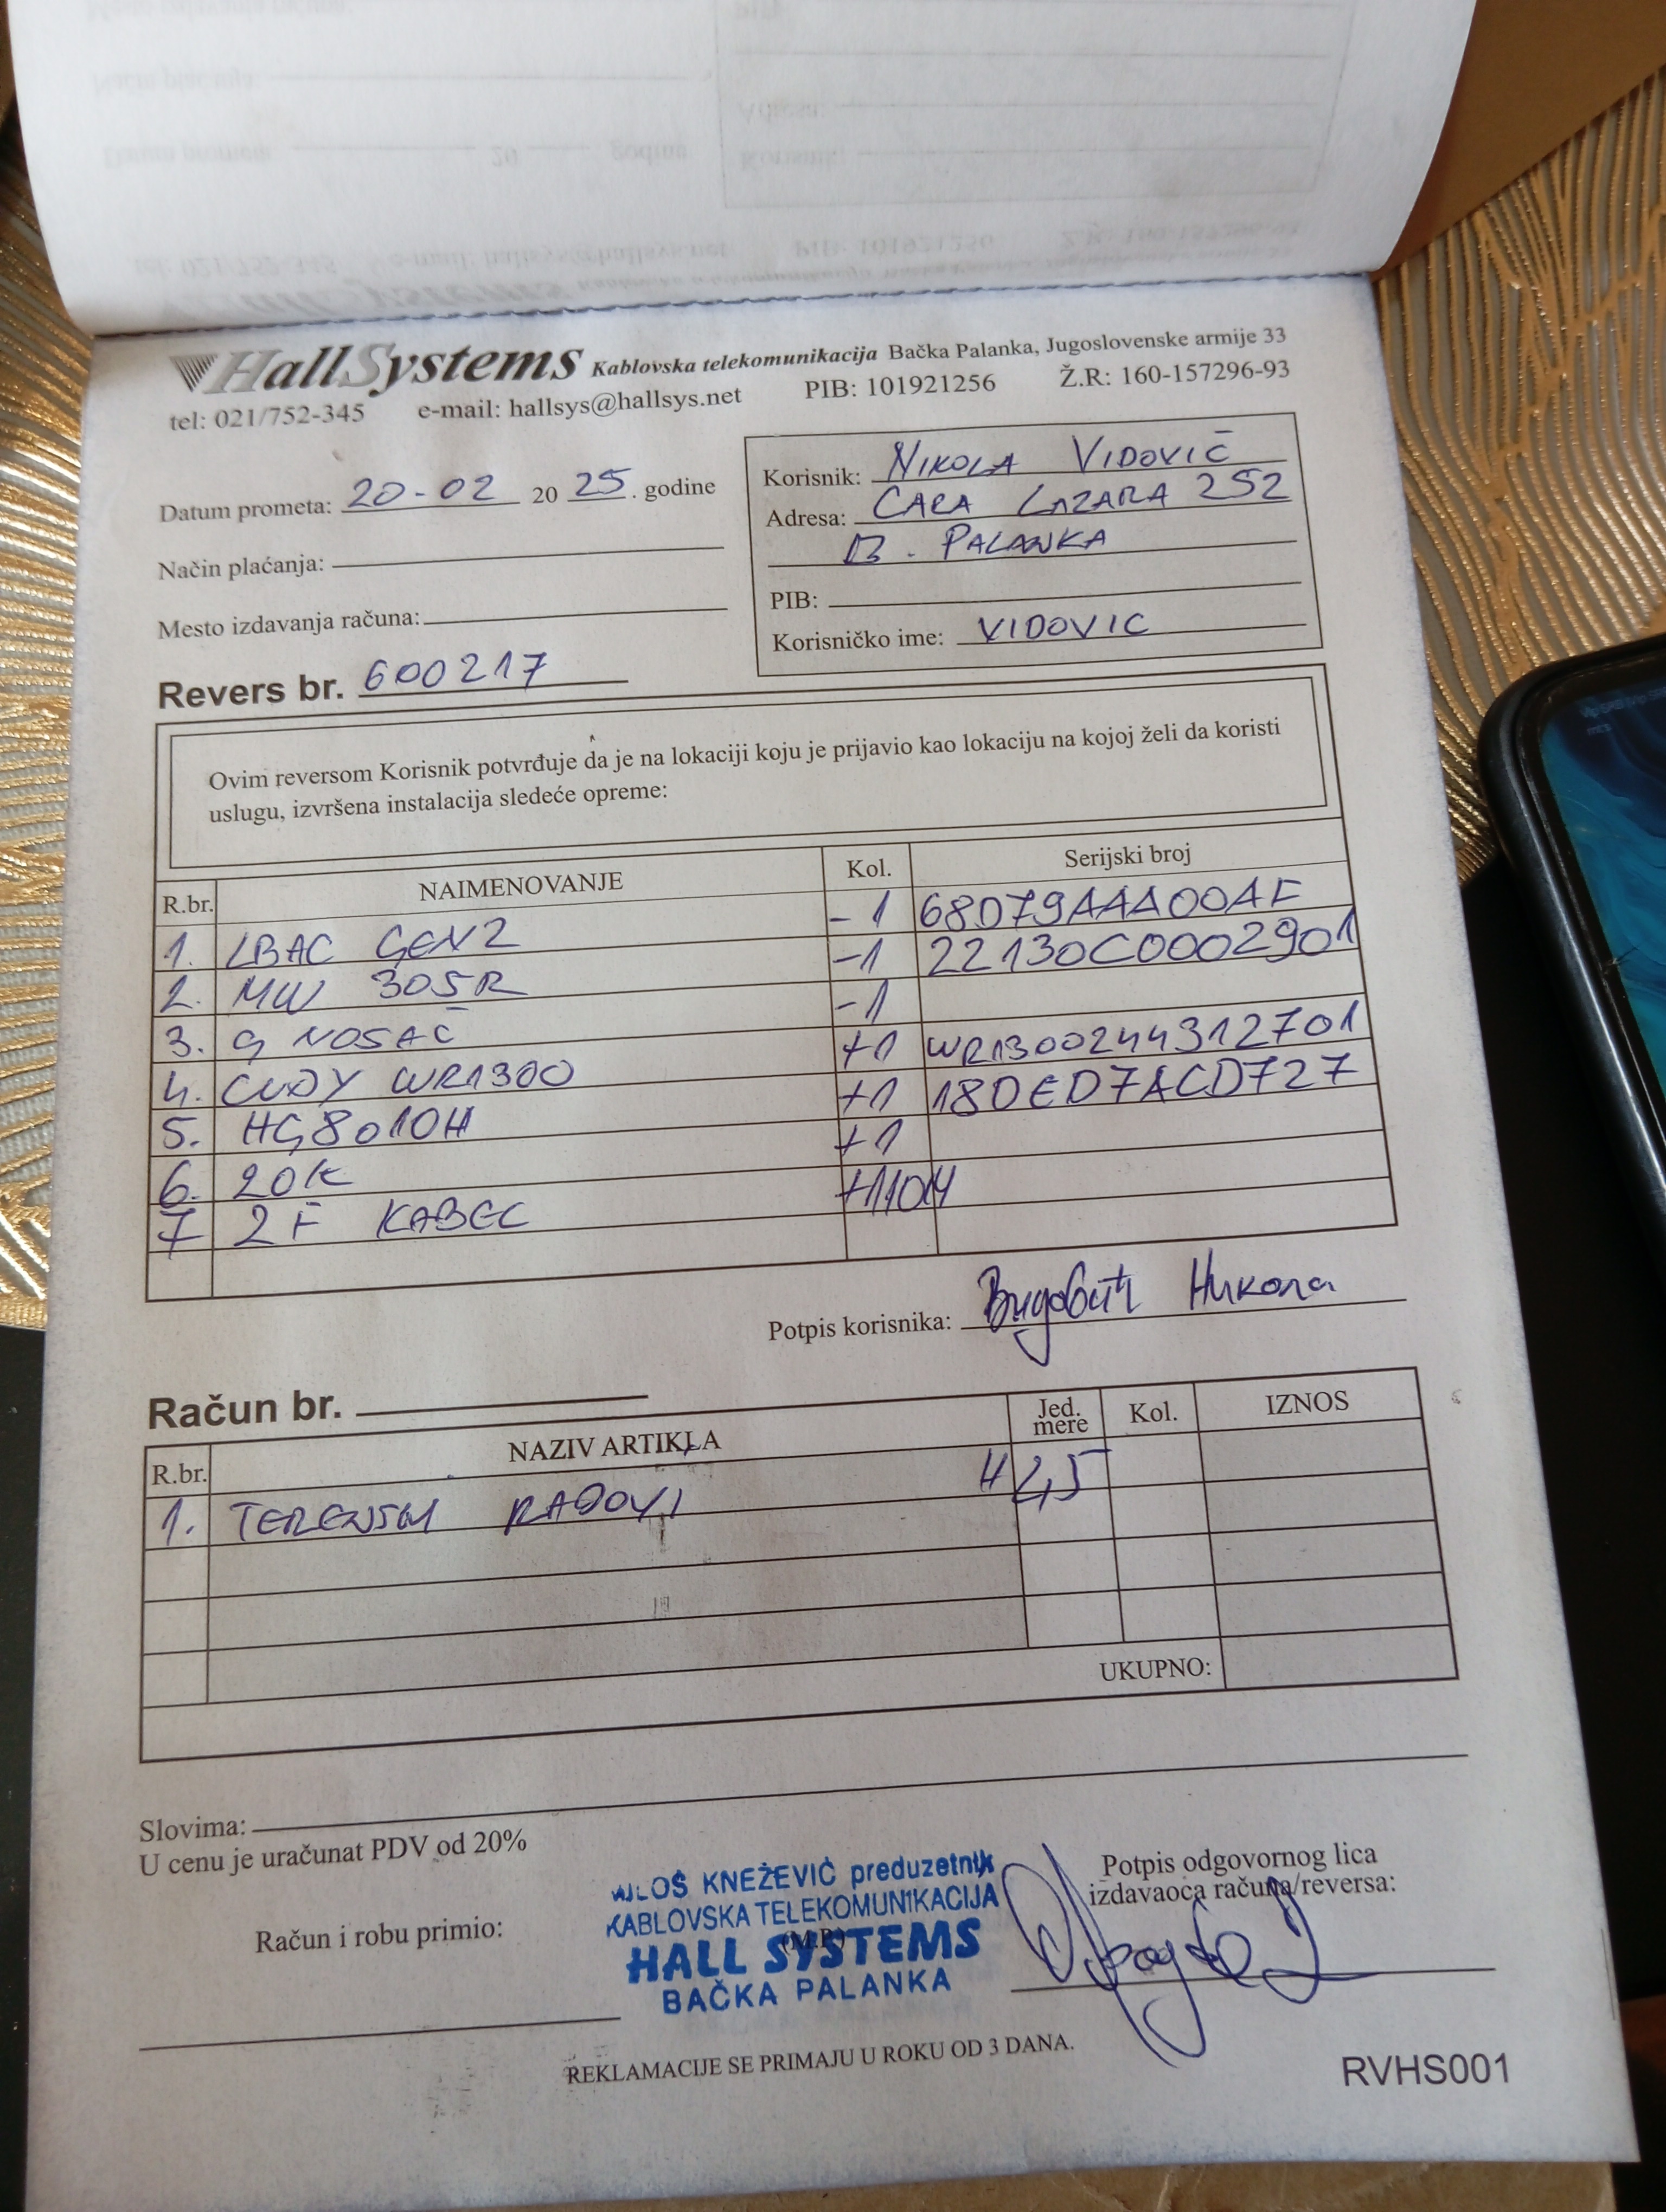 HallSystems Kablovska telekomunikacija Bačka Palanka, Jugoslovenske armije 33
tel: 021/752-345 e-mail: hallsys@hallsys.net PIB: 101921256 Ž.R: 160-157296-93
Datum prometa: 20-02 20 25. godine
Način plaćanja:
Mesto izdavanja računa:
Revers br. 600217
Korisnik: NIKOLA VIDOVIĆ
Adresa: CARA LAZARA 252
B. PALANKA
PIB:
Korisničko ime: VIDOVIC
Ovim reversom Korisnik potvrđuje da je na lokaciji koju je prijavio kao lokaciju na kojoj želi da koristi
uslugu, izvršena instalacija sledeće opreme:
R.br. NAIMENOVANJE Kol. Serijski broj
1. LBAC GEN2 -1 68D79AAA00AF
2. MW 305R -1 22130C0002901
3. G NOSAČ -1
4. CUDY WR1300 +1 WR1300244312701
5. HG8010H +1 18DED7ACD727
6. 20K +1
7 2F KABEL +110M
Potpis korisnika: Видовић Никола
Račun br.
R.br. NAZIV ARTIKLA Jed. mere Kol. IZNOS
1. TERENSKI RADOVI H 2,5
UKUPNO:
Slovima:
U cenu je uračunat PDV od 20%
Račun i robu primio:
MILOŠ KNEŽEVIĆ preduzetnik
KABLOVSKA TELEKOMUNIKACIJA
(M.P.)
HALL SYSTEMS
BAČKA PALANKA
Potpis odgovornog lica
izdavaoca računa/reversa:
REKLAMACIJE SE PRIMAJU U ROKU OD 3 DANA.
RVHS001